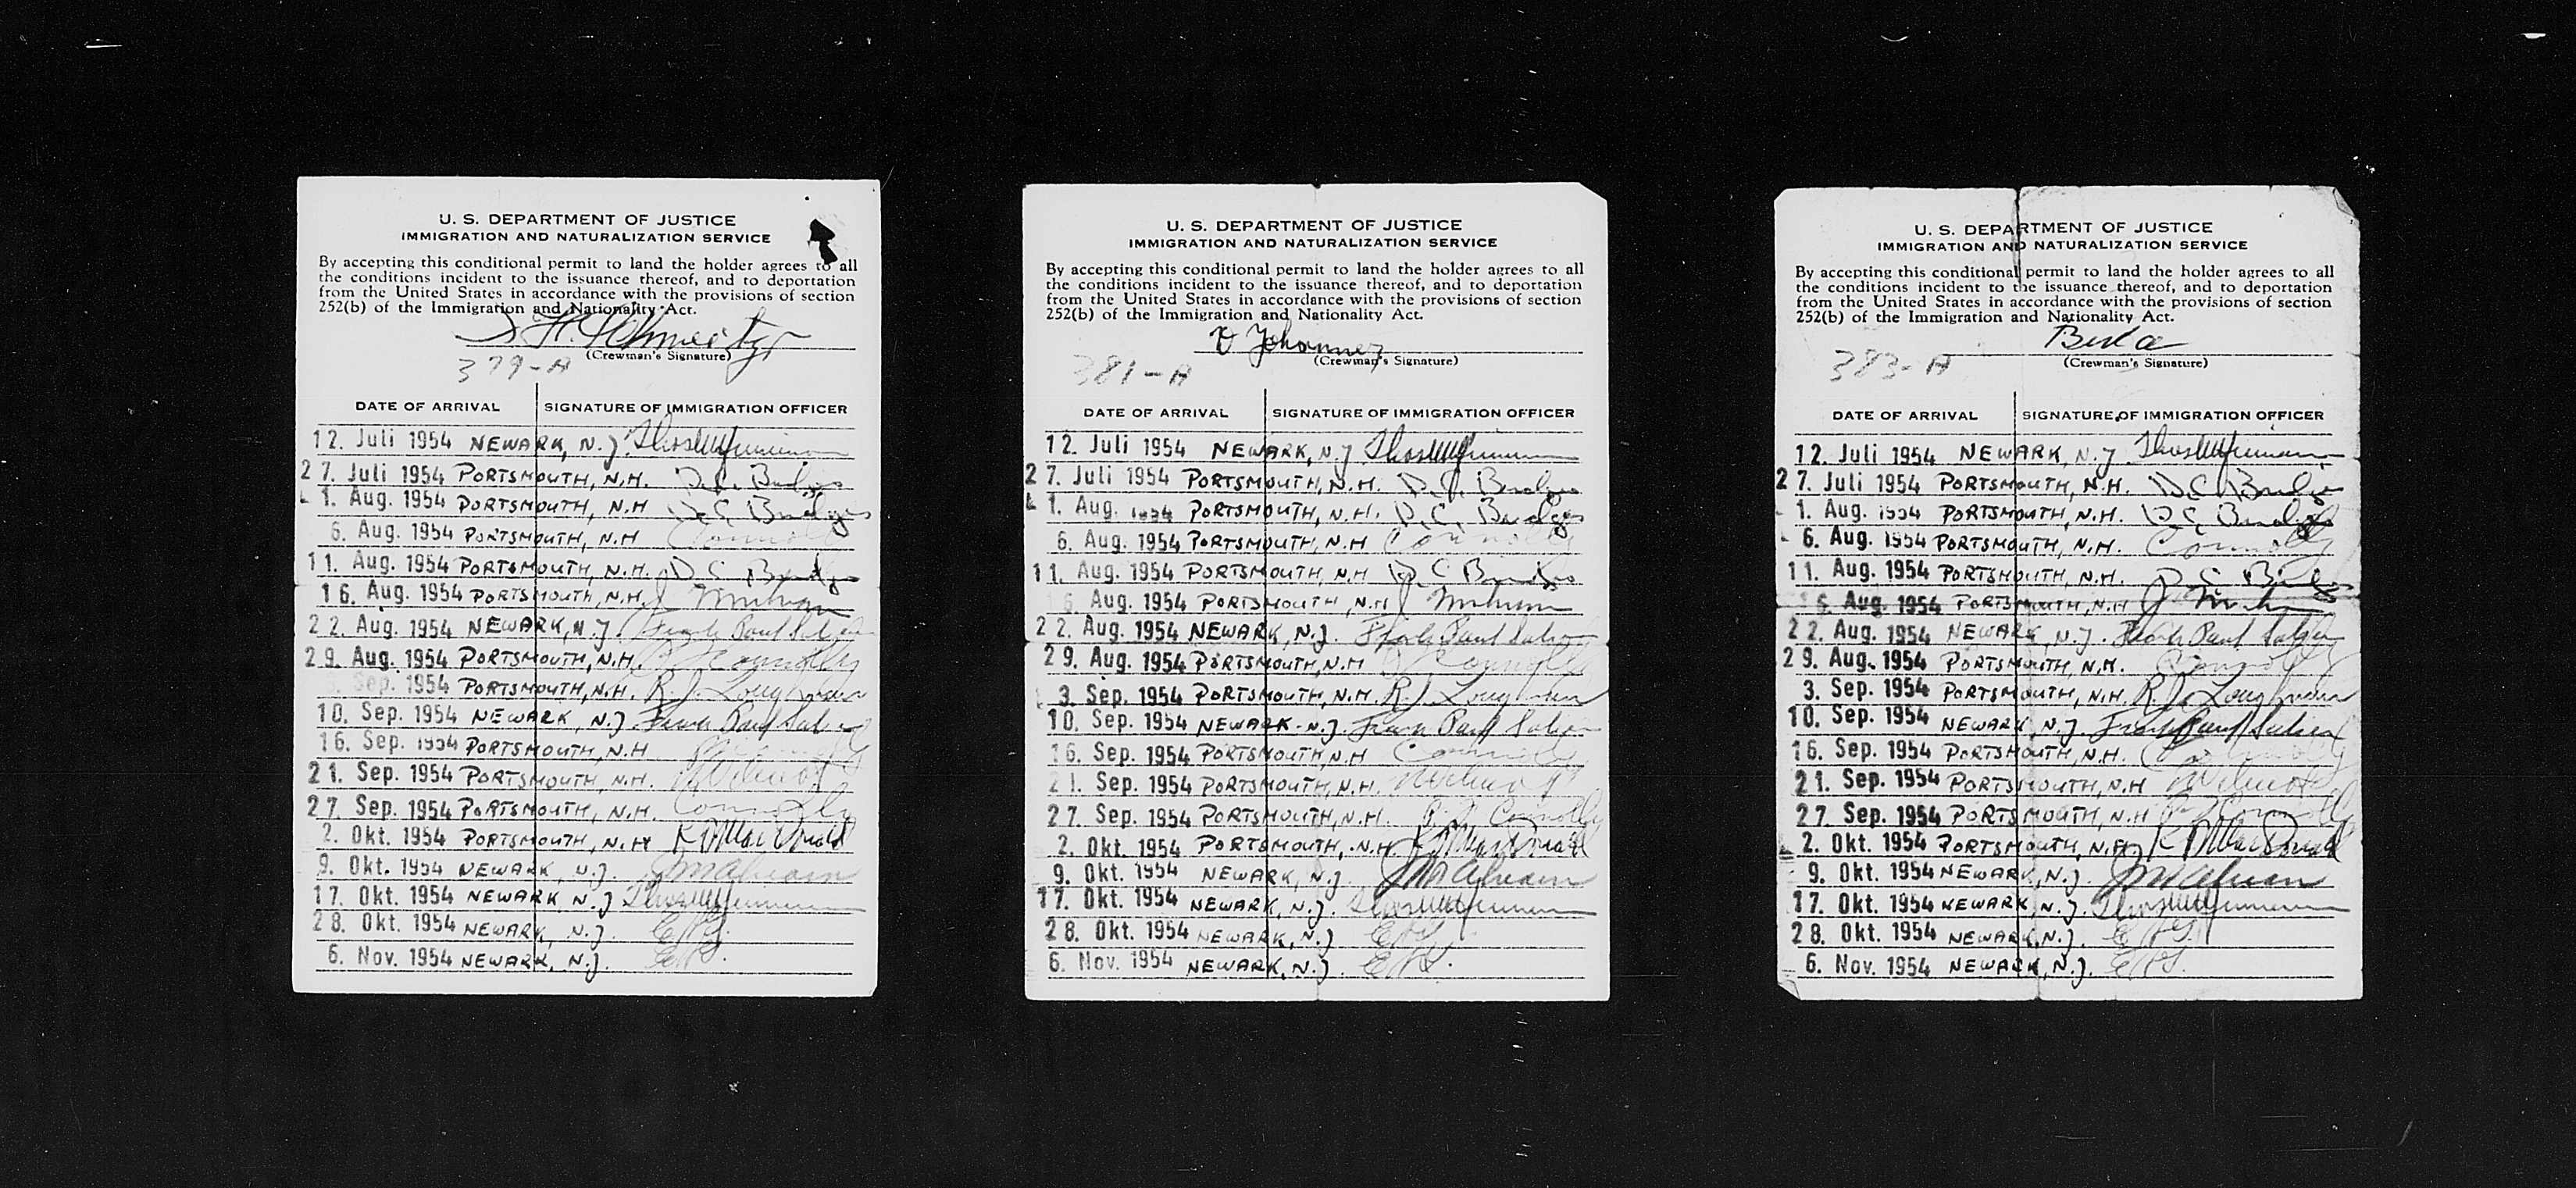 U. S. DEPARTMENT OF JUSTICE
IMMIGRATION AND NATURALIZATION SERVICE
By accepting this conditional permit to land the holder agrees to all
the conditions incident to the issuance thereof, and to deportation
from the United States in accordance with the provisions of section
252(b) of the Immigration and Nationality Act.
(Crewman's Signature)
379-A
DATE OF ARRIVAL SIGNATURE OF IMMIGRATION OFFICER
12. Juli 1954 NEWARK, N.J.
27. Juli 1954 PORTSMOUTH, N.H.
1. Aug. 1954 PORTSMOUTH, N.H D.C. Bridges
6. Aug. 1954 PORTSMOUTH, N.H Connolly
11. Aug. 1954 PORTSMOUTH, N.H. D.C. Bridges
16. Aug. 1954 PORTSMOUTH, N.H.
22. Aug. 1954 NEWARK, N.J. Frank Paul
29. Aug. 1954 PORTSMOUTH, N.H. Connolly
Sep. 1954 PORTSMOUTH, N.H. R.J. Loughran
10. Sep. 1954 NEWARK, N.J Frank Paul
16. Sep. 1954 PORTSMOUTH, N.H
21. Sep. 1954 PORTSMOUTH, N.H. Wilmot
27. Sep. 1954 PORTSMOUTH, N.H. Connolly
2. Okt. 1954 PORTSMOUTH, N.H MacDonald
9. Okt. 1954 NEWARK, N.J.
17. Okt. 1954 NEWARK N.J
28. Okt. 1954 NEWARK, N.J.
6. Nov. 1954 NEWARK, N.J.
U. S. DEPARTMENT OF JUSTICE
IMMIGRATION AND NATURALIZATION SERVICE
By accepting this conditional permit to land the holder agrees to all
the conditions incident to the issuance thereof, and to deportation
from the United States in accordance with the provisions of section
252(b) of the Immigration and Nationality Act.
Johannes
(Crewman's Signature)
381-A
DATE OF ARRIVAL SIGNATURE OF IMMIGRATION OFFICER
12. Juli 1954 NEWARK, N.J
27. Juli 1954 PORTSMOUTH, N.H. D.C. Bridges
1. Aug. 1954 PORTSMOUTH, N.H. D.C. Bridges
6. Aug. 1954 PORTSMOUTH, N.H Connolly
11. Aug. 1954 PORTSMOUTH, N.H D C Bridges
6. Aug. 1954 PORTSMOUTH, N.H
22. Aug. 1954 NEWARK, N.J. Frank Paul
29. Aug. 1954 PORTSMOUTH, N.H Connolly
3. Sep. 1954 PORTSMOUTH, N.H. R.J. Loughran
10. Sep. 1954 NEWARK - N.J. Frank Paul
16. Sep. 1954 PORTSMOUTH, N.H Connolly
21. Sep. 1954 PORTSMOUTH, N.H. Wilmot
27. Sep. 1954 PORTSMOUTH, N.H. Connolly
2. Okt. 1954 PORTSMOUTH, N.H. MacDonald
9. Okt. 1954 NEWARK, N.J.
17. Okt. 1954 NEWARK, N.J.
28. Okt. 1954 NEWARK, N.J
6. Nov. 1954 NEWARK, N.J.
U. S. DEPARTMENT OF JUSTICE
IMMIGRATION AND NATURALIZATION SERVICE
By accepting this conditional permit to land the holder agrees to all
the conditions incident to the issuance thereof, and to deportation
from the United States in accordance with the provisions of section
252(b) of the Immigration and Nationality Act.
(Crewman's Signature)
383-A
DATE OF ARRIVAL SIGNATURE OF IMMIGRATION OFFICER
12. Juli 1954 NEWARK, N.J
27. Juli 1954 PORTSMOUTH, N.H. D.C. Bridges
1. Aug. 1954 PORTSMOUTH, N.H. D.C. Bridges
6. Aug. 1954 PORTSMOUTH, N.H. Connolly
11. Aug. 1954 PORTSMOUTH, N.H. D C Bridges
6. Aug. 1954 PORTSMOUTH, N.H
22. Aug. 1954 NEWARK, N.J. Frank Paul
29. Aug. 1954 PORTSMOUTH, N.H. Connolly
3. Sep. 1954 PORTSMOUTH, N.H. R.J. Loughran
10. Sep. 1954 NEWARK, N.J. Frank Paul
16. Sep. 1954 PORTSMOUTH, N.H. Connolly
21. Sep. 1954 PORTSMOUTH, N.H Wilmot
27. Sep. 1954 PORTSMOUTH, N.H Connolly
2. Okt. 1954 PORTSMOUTH, N.H MacDonald
9. Okt. 1954 NEWARK, N.J.
17. Okt. 1954 NEWARK, N.J.
28. Okt. 1954 NEWARK, N.J.
6. Nov. 1954 NEWARK, N.J.